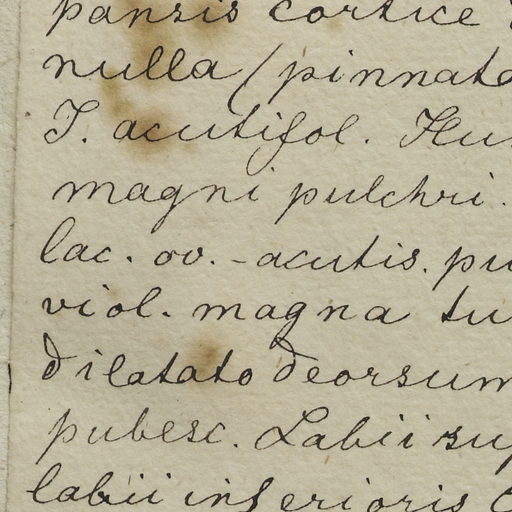 pansis cortice
nulla (pinnato
J. acutifol. Hu
magni pulchri.
lac. ov. - acutis. pu
viol. magna tu
dilatato deorsum
pubesc. Labii sup
labii inferioris